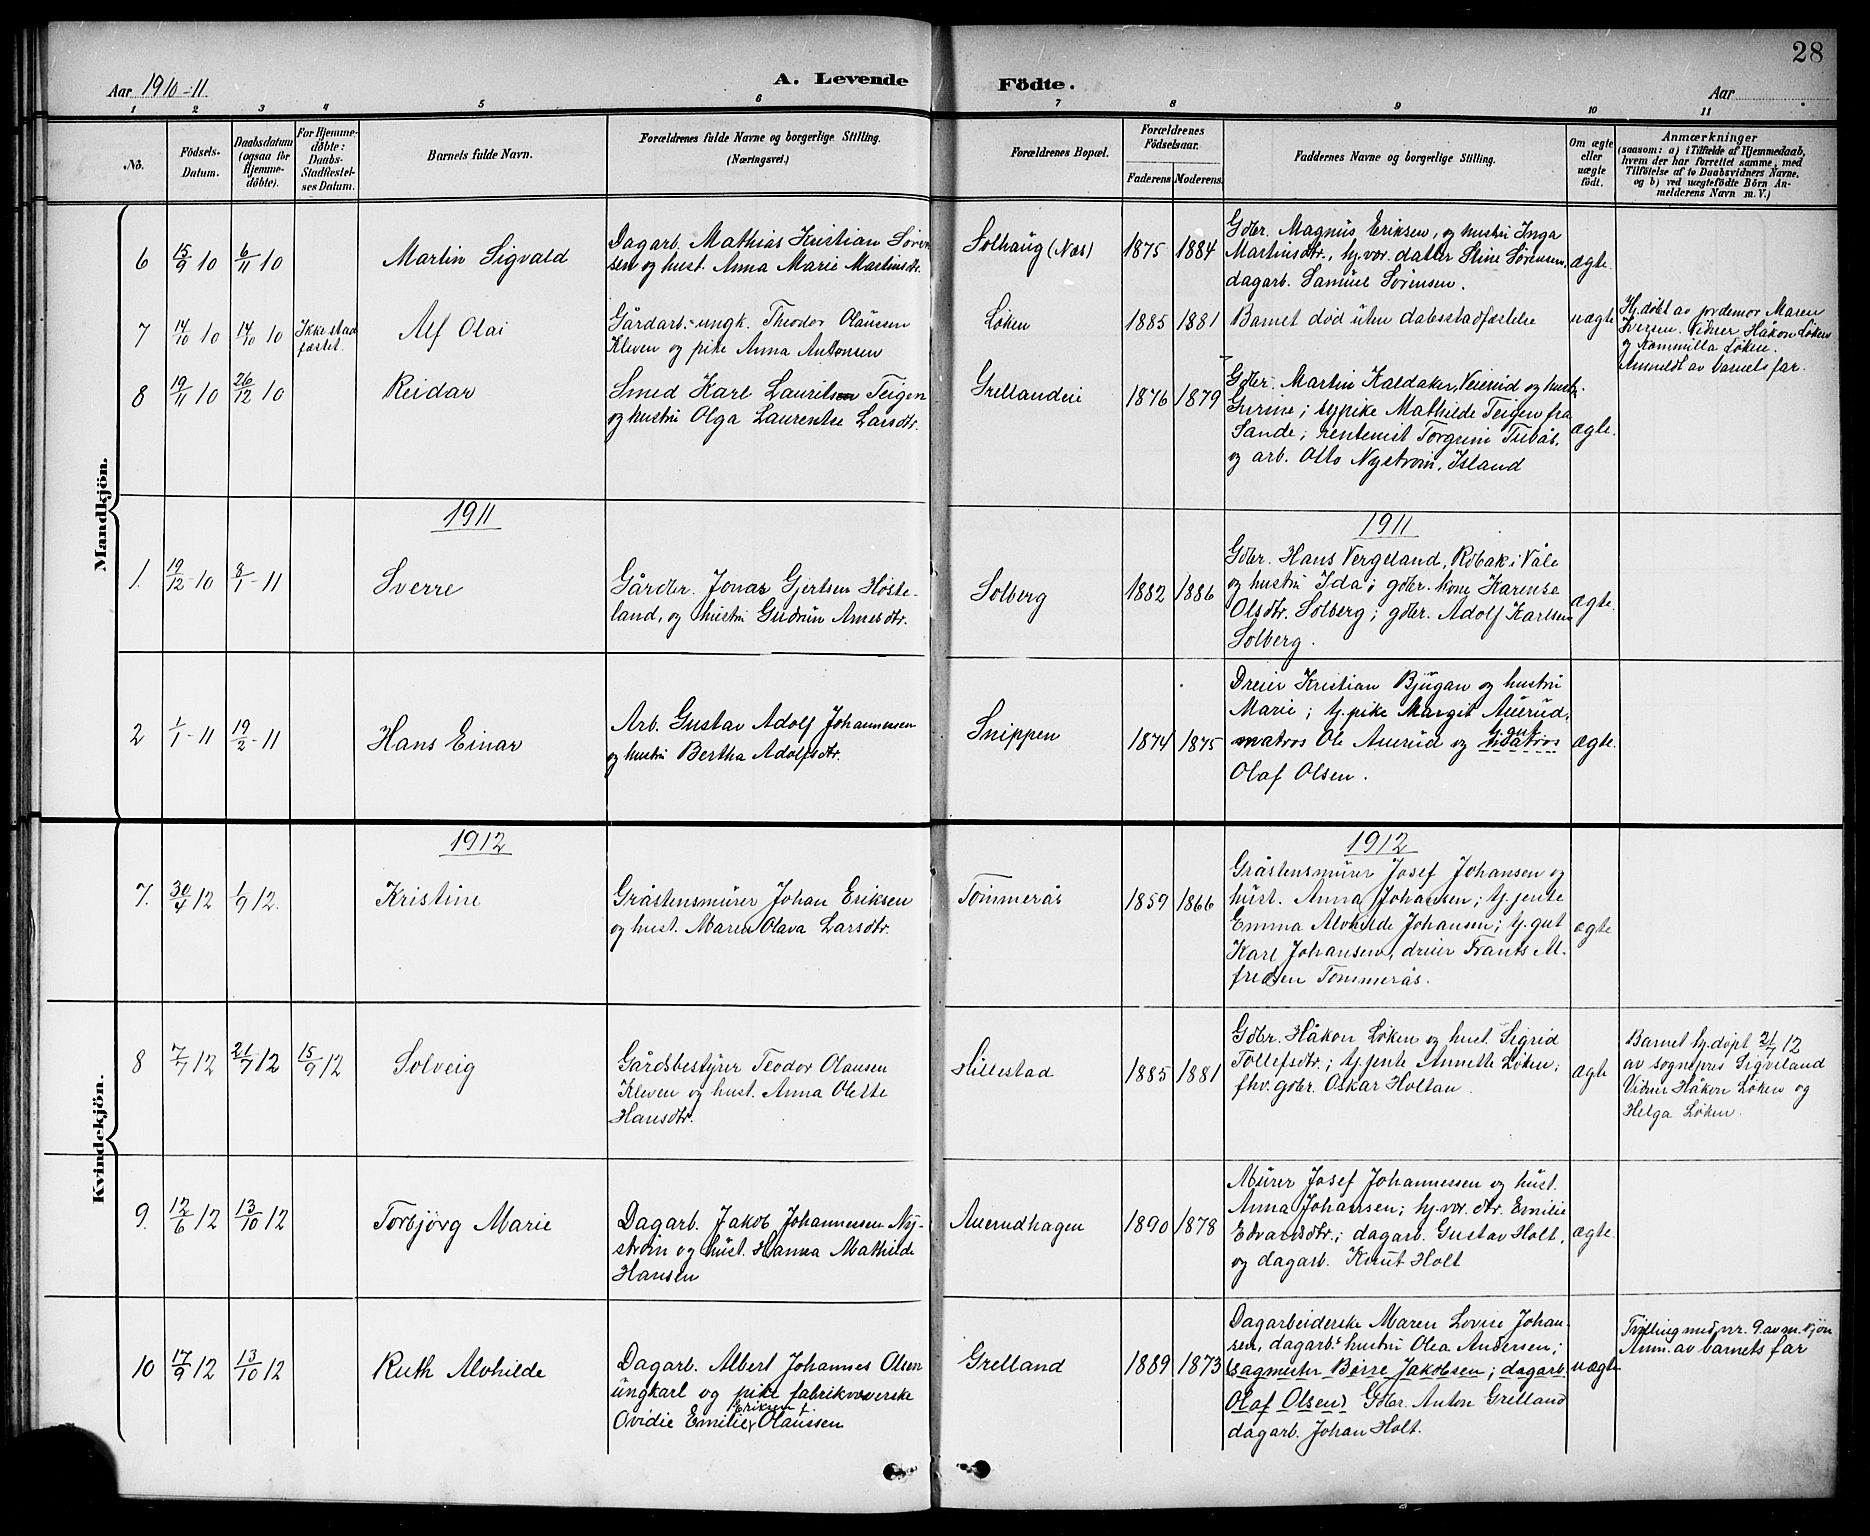 28
Aar 1910-11
A. Levende Födte.
Aar
1 2 3 4 5 6 7 8 9 10 11
No.
Födsels-
Datum.
Daabsdatum
(ogsaa for
Hjemme-
döbte).
For Hjemme-
döbte:
Daabs-
Stadfæstel-
ses Datum.
Barnets fulde Navn.
Forældrenes fulde Navne og borgerlige Stilling.
(Næringsvei.)
Forældrenes Bopæl.
Forældrenes
Födselsaar.
Faderens Moderens.
Faddernes Navne og borgerlige Stilling.
Om ægte
eller
uægte
födt.
Anmærkninger
(saasom: a) i Tilfælde af Hjemmedaab,
hvem der har forrettet samme, med
Tilföielse af to Daabsvidners Navne.
og b) ved uægtefödte Börn An-
melderens Navn m. V.)
Mandkjön.
6
15/9 10
6/11 10
Martin Sigvald
Dagarb. Mathias Kristian Søren
sen og hust. Anna Marie Martinsdtr.
Solhaug (Næs)
1875
1884
Gdbr. Magnus Eriksen, og hustru Inga
Martinsdtr., hj.vær. datter Stine Sørensen,
dagarb. Samuel Sörensen.
ægte.
7
14/10 10
14/10 10
Ikke stad
fæstet.
Alf Olai
Gårdarb.-ungk. Theodor Olaüsen
Kleven og pike Anna Antonsen
Løken
1885
1881
Barnet död üten dabsstadfæstelse
uægte
Hj.døbt av jordemor Maren
Iversen. Vidner Håkon Løken
og Kammilla Løken.
Anmeldt av barnets far.
8
19/11 10
26/12 10
Reidar
Smed Karl Lauritsen Teigen
og hustru Olga Laurentse Larsdtr.
Grellandeie
1876
1879
Gdbr. Martin Kaldaker, Veierud og hustr.
Gurine; tj.pike Mathilde Teigen fra
Sande; rentenist Torgrim Tubås,
og arb. Otto Nyström, Island
ægte.
1911
1911
1.
19/12-10
8/1-11
Sverre
Gårdbr. Jonas Gjertsen Høste-
land, og hustru Gudrun Arnesdtr.
Solberg
1882
1886
Gdbr. Hans Vergeland, Robak i Våle
og hustru Ida; gdbr. kone Karense
Olsdtr. Solberg; gdbr. Adolf Karlsen
Solberg.
ægte.
2
1/1-11
19/2-11
Hans Einar
Arb. Gustav Adolf Johannessen
og hustru Bertha Adolfsdtr.
Snippen
1874
1875
Dreier Kristian Bjügan og hustru
Marie; tj.pike Margit Auerud,
matros Ole Auerud og matros
tj.gut
Olaf Olsen.
ægte.
Kvindekjön.
1912
1912
7.
30/4 12
1/9 12.
Kristine
Gråstensmürer Johan Eriksen
og hust. Maren Olava Larsdtr.
Tømmerås
1859
1866
Gråstensmürer Josef Johansen og
hüst. Anna Johansen; tj.jente
Emma Alvhilde Johansen; tj.gut
Karl Johansen, dreier Frants Al-
fredsen Tømmerås.
ægte
8
7/7 12
21/7 12
15/9 12
Solveig
Gårdsbestyrer Teodor Olausen
Kleven og hust. Anna Olette
Hansdtr.
Hillestad
1885
1881
Gdbr. Håkon Løken og hust. Sigrid
Tollefsdtr.; tj.jente Annette Løken;
fhv. gdbr. Oskar Holtan
ægte
Barnet hj.døpt 21/7 12
av sognepres Sigveland
Vidner Håkon Løken og
Helga Løken.
9.
12/6 12
13/10 12
Torbjørg Marie
Dagarb. Jakob Johannessen Ny-
strøm og hüst. Hanna Mathilde
Hansen
Auerudhagen
1890
1878
Mürer Josef Johannessen og hüst.
Anna Johansen; hj.vær. dtr. Emilie
Edvardsdtr.; dagarb. Gustav Holt,
og dagarb. Knut Holt
ægte.
10
17/9 12
13/10 12
Ruth Alvhilde
Dagarb. Albert Johannes Olsen
üngkarl og pike fabrikvæverske
Eriksen
Ovidie Emilie Olaussen
Grelland
1889
1873
Dagarbeiderske Maren Lovise Johan-
sen, dagarbs hustru Olea Andersen;
sagmester Börre Jakobsen; dagarb.
Olaf Olsen) Gdbr. Anton Grelland
dagarb. Johan Holt.
uægte
Tvilling med nr. 9 av m. kjön
Anm. av barnets far